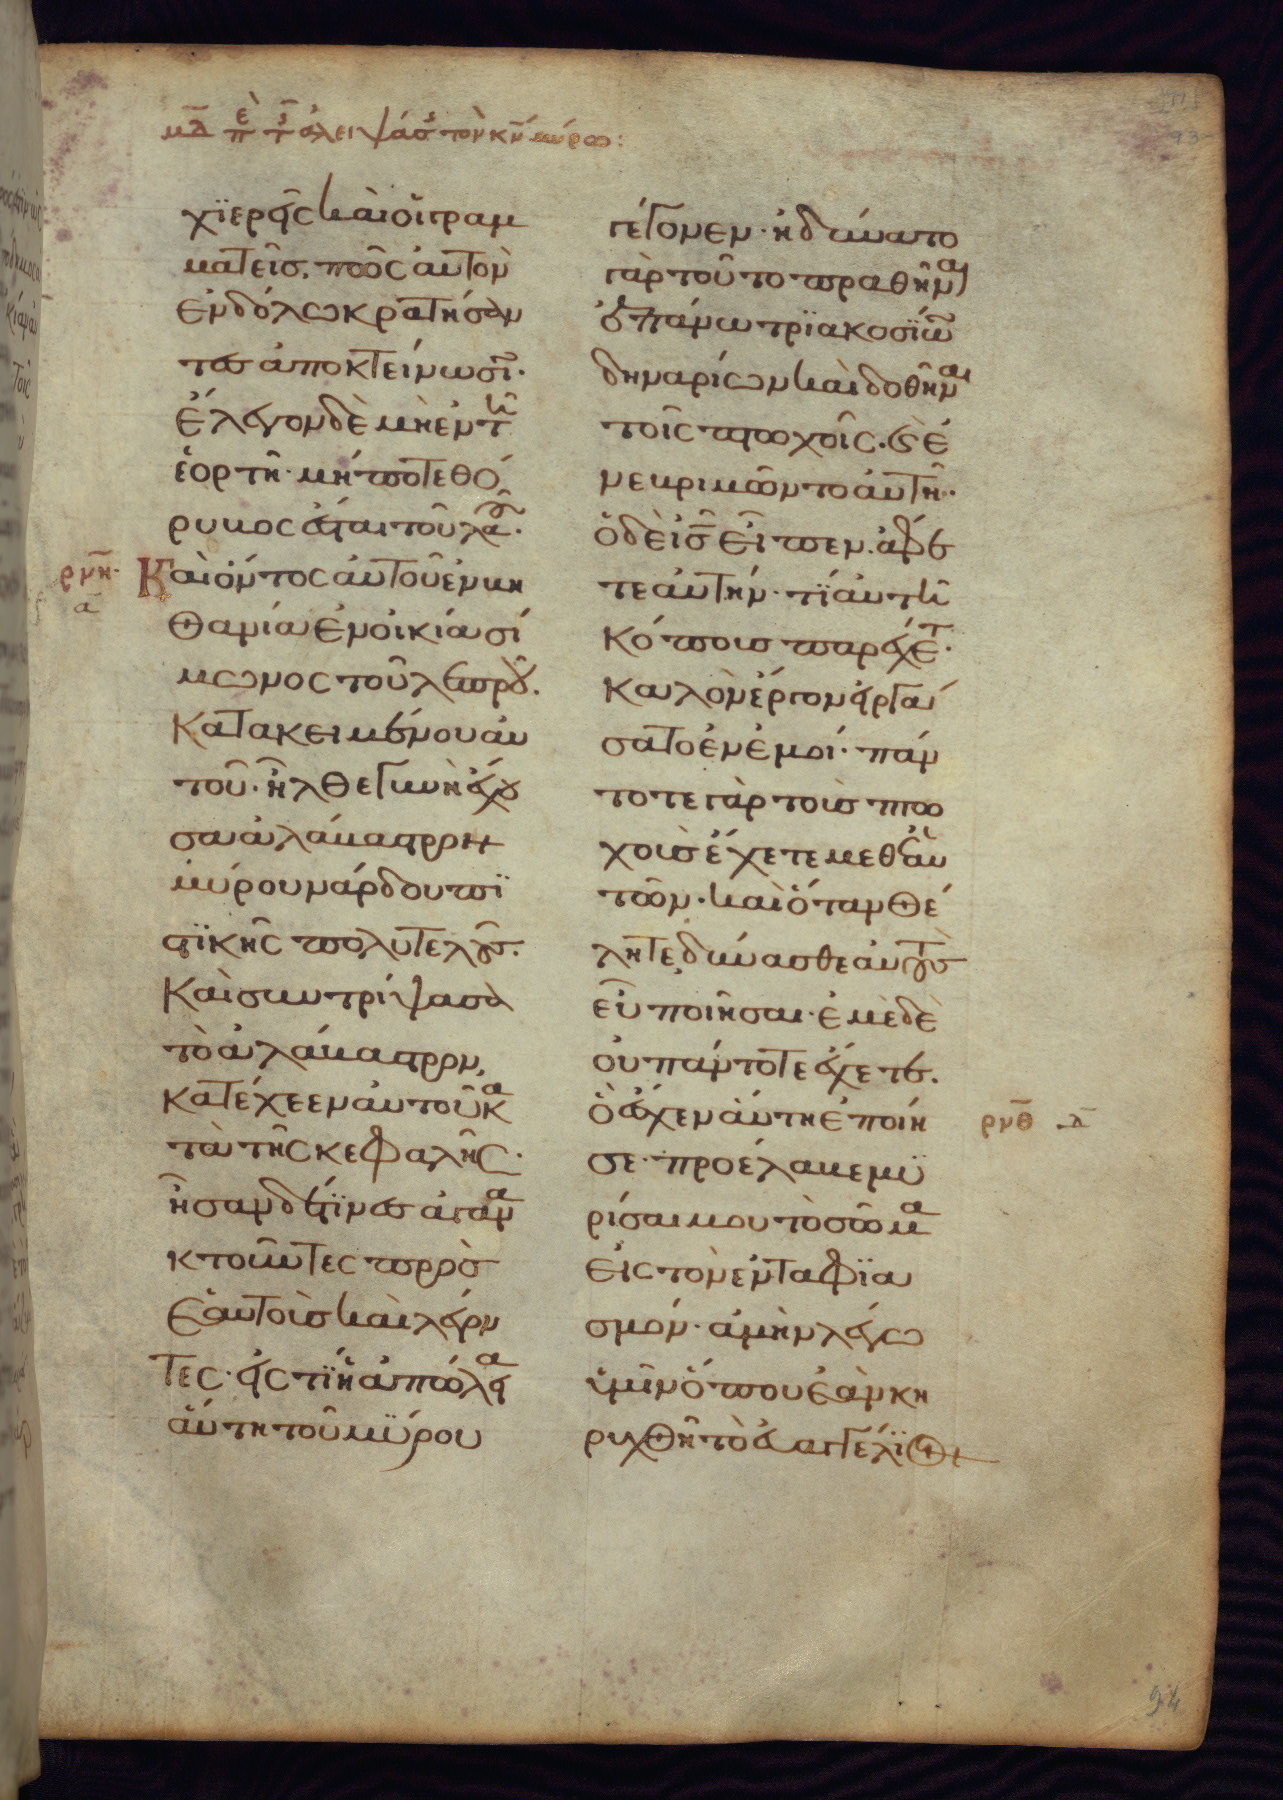 μδ περὶ τῆς ἀλειψάσης τὸν κν μύρω:
χϊερεῖς καὶ οἱ γραμ
ματεῖς, πῶς αὐτὸν
ἐν δόλω κρατήσαν
τες ἀποκτείνωσῖ·
ἔλεγον δὲ μὴ ἐν τῆ
ἑορτῆ· μήποτε θό
ρυβος ἔσται τοῦ λαοῦ·
ρνη α
Καὶ ὄντος αὐτοῦ ἐν βη
θανία ἐν οἰκία σί
μωνος τοῦ λεπροῦ.
κατακειμένου αὐ
τοῦ· ἦλθε γυνὴ ἔχου
σα ἀλάβαστρον
μύρου νάρδου πϊ
στϊκῆς πολυτελοῦς·
Καὶ συντρίψασα
τὸ ἀλάβαστρον,
κατέχεεν αὐτοῦ κα
τὰ τῆς κεφαλῆς·
ἦσαν δέ τϊνες ἀγανα
κτοῦντες πρὸς
ἑαυτοὺς καὶ λέγον
τες· εἰς τϊ ἡ ἀπώλεια
αὕτη τοῦ μύρου
γέγονεν· ἠδύνατο
γὰρ τοῦτο πραθῆναι
ἐπάνω τρϊακοσϊων
δηναρίων καὶ δοθῆναι
τοῖς πτωχοῖς· καὶ ἐ
νεβριμῶντο αὐτῆ·
ὁ δὲ ις εἶπεν· ἄφε
τε αὐτήν· τϊ αὐτῆ
κόπους παρέχετε·
καλὸν ἔργον εἰργά
σατο ἐν ἐμοί· πάν
τοτε γὰρ τοὺς πτω
χοὺς ἔχετε μεθ' ἑαυ
τῶν· καὶ ὅταν θέ
λητε δύνασθε αὐτοὺς
εὖ ποιῆσαι· ἐμὲ δὲ
οὐ πάντοτε ἔχετε.
ὃ ἔσχεν αὕτη ἐποίη
ρνθ δ
σε· προέλαβε μυ
ρίσαι μου τὸ σῶμα
εἰς τὸν ἐνταφϊα
σμόν· ἀμὴν λέγω
ὑμῖν ὅπου ἐὰν κη
ρυχθῆ τὸ εὐαγγέλϊον
94